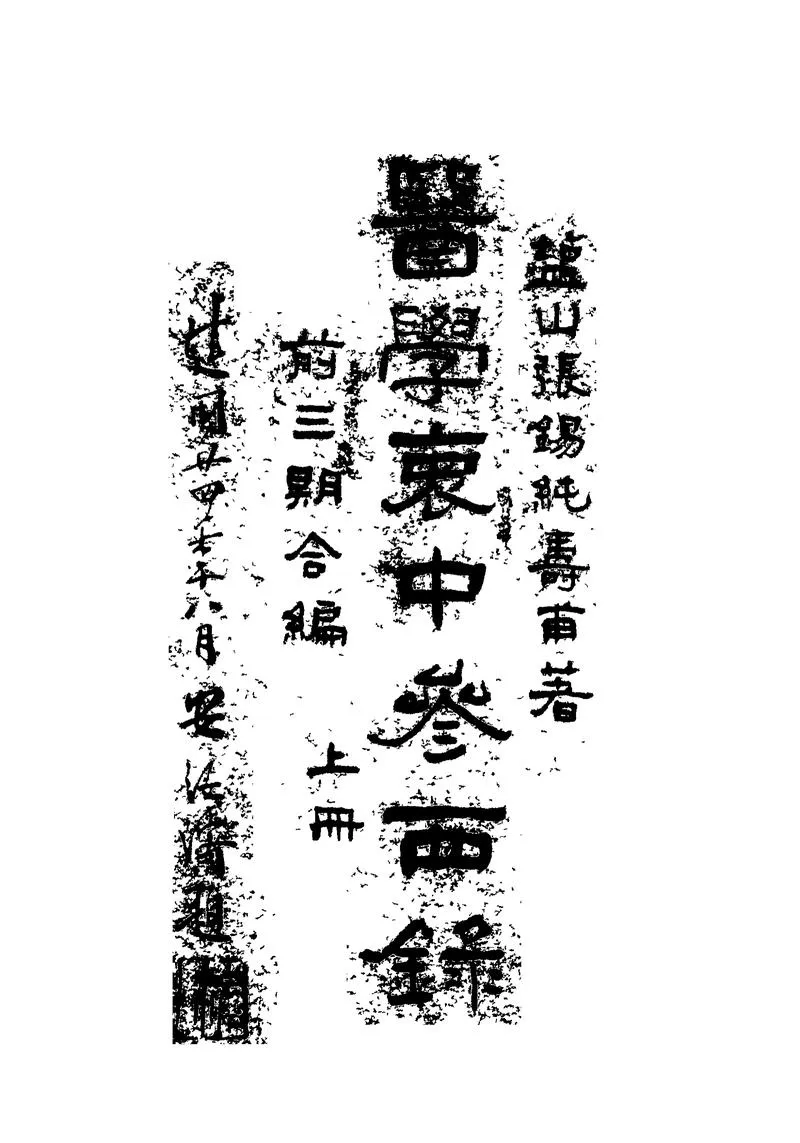 鹽山張錫純壽甫著
醫學衷中參西錄
前三期合編
上冊
建國廿四年八月安